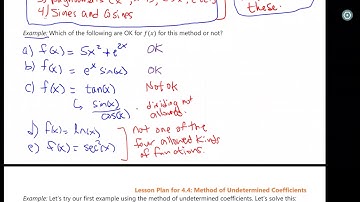 4) Sines and Cosines
these.
Example: Which of the following are OK for f(x) for this method or not?
a) f(x) = 5x² + e^2x OK
b) f(x) = e^x sin(x) OK
c) f(x) = tan(x) Not ok
↳ sin(x)/cos(x) dividing not allowed.
d) f(x) = ln(x) not one of the
four allowed kinds
e) f(x) = sec²(x) of functions.
Lesson Plan for 4.4: Method of Undetermined Coefficients
Example: Let's try our first example using the method of undetermined coefficients. Let's solve this: